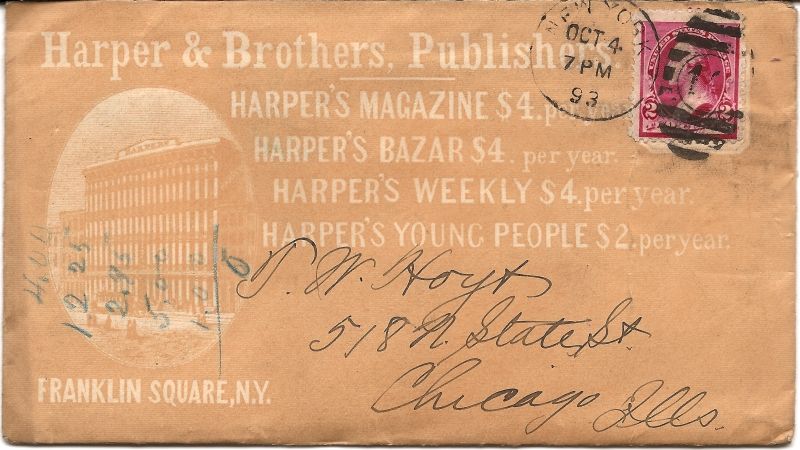 Harper & Brothers, Publishers.
HARPER'S MAGAZINE $4. per year.
HARPER'S BAZAR $4. per year.
HARPER'S WEEKLY $4. per year.
HARPER'S YOUNG PEOPLE $2. per year.
FRANKLIN SQUARE, N.Y.
HARPERS
NEW YORK
OCT 4
7 PM
93
2 2
W. Hoyt
518 N. State St
Chicago Ills.
12 25
5.00